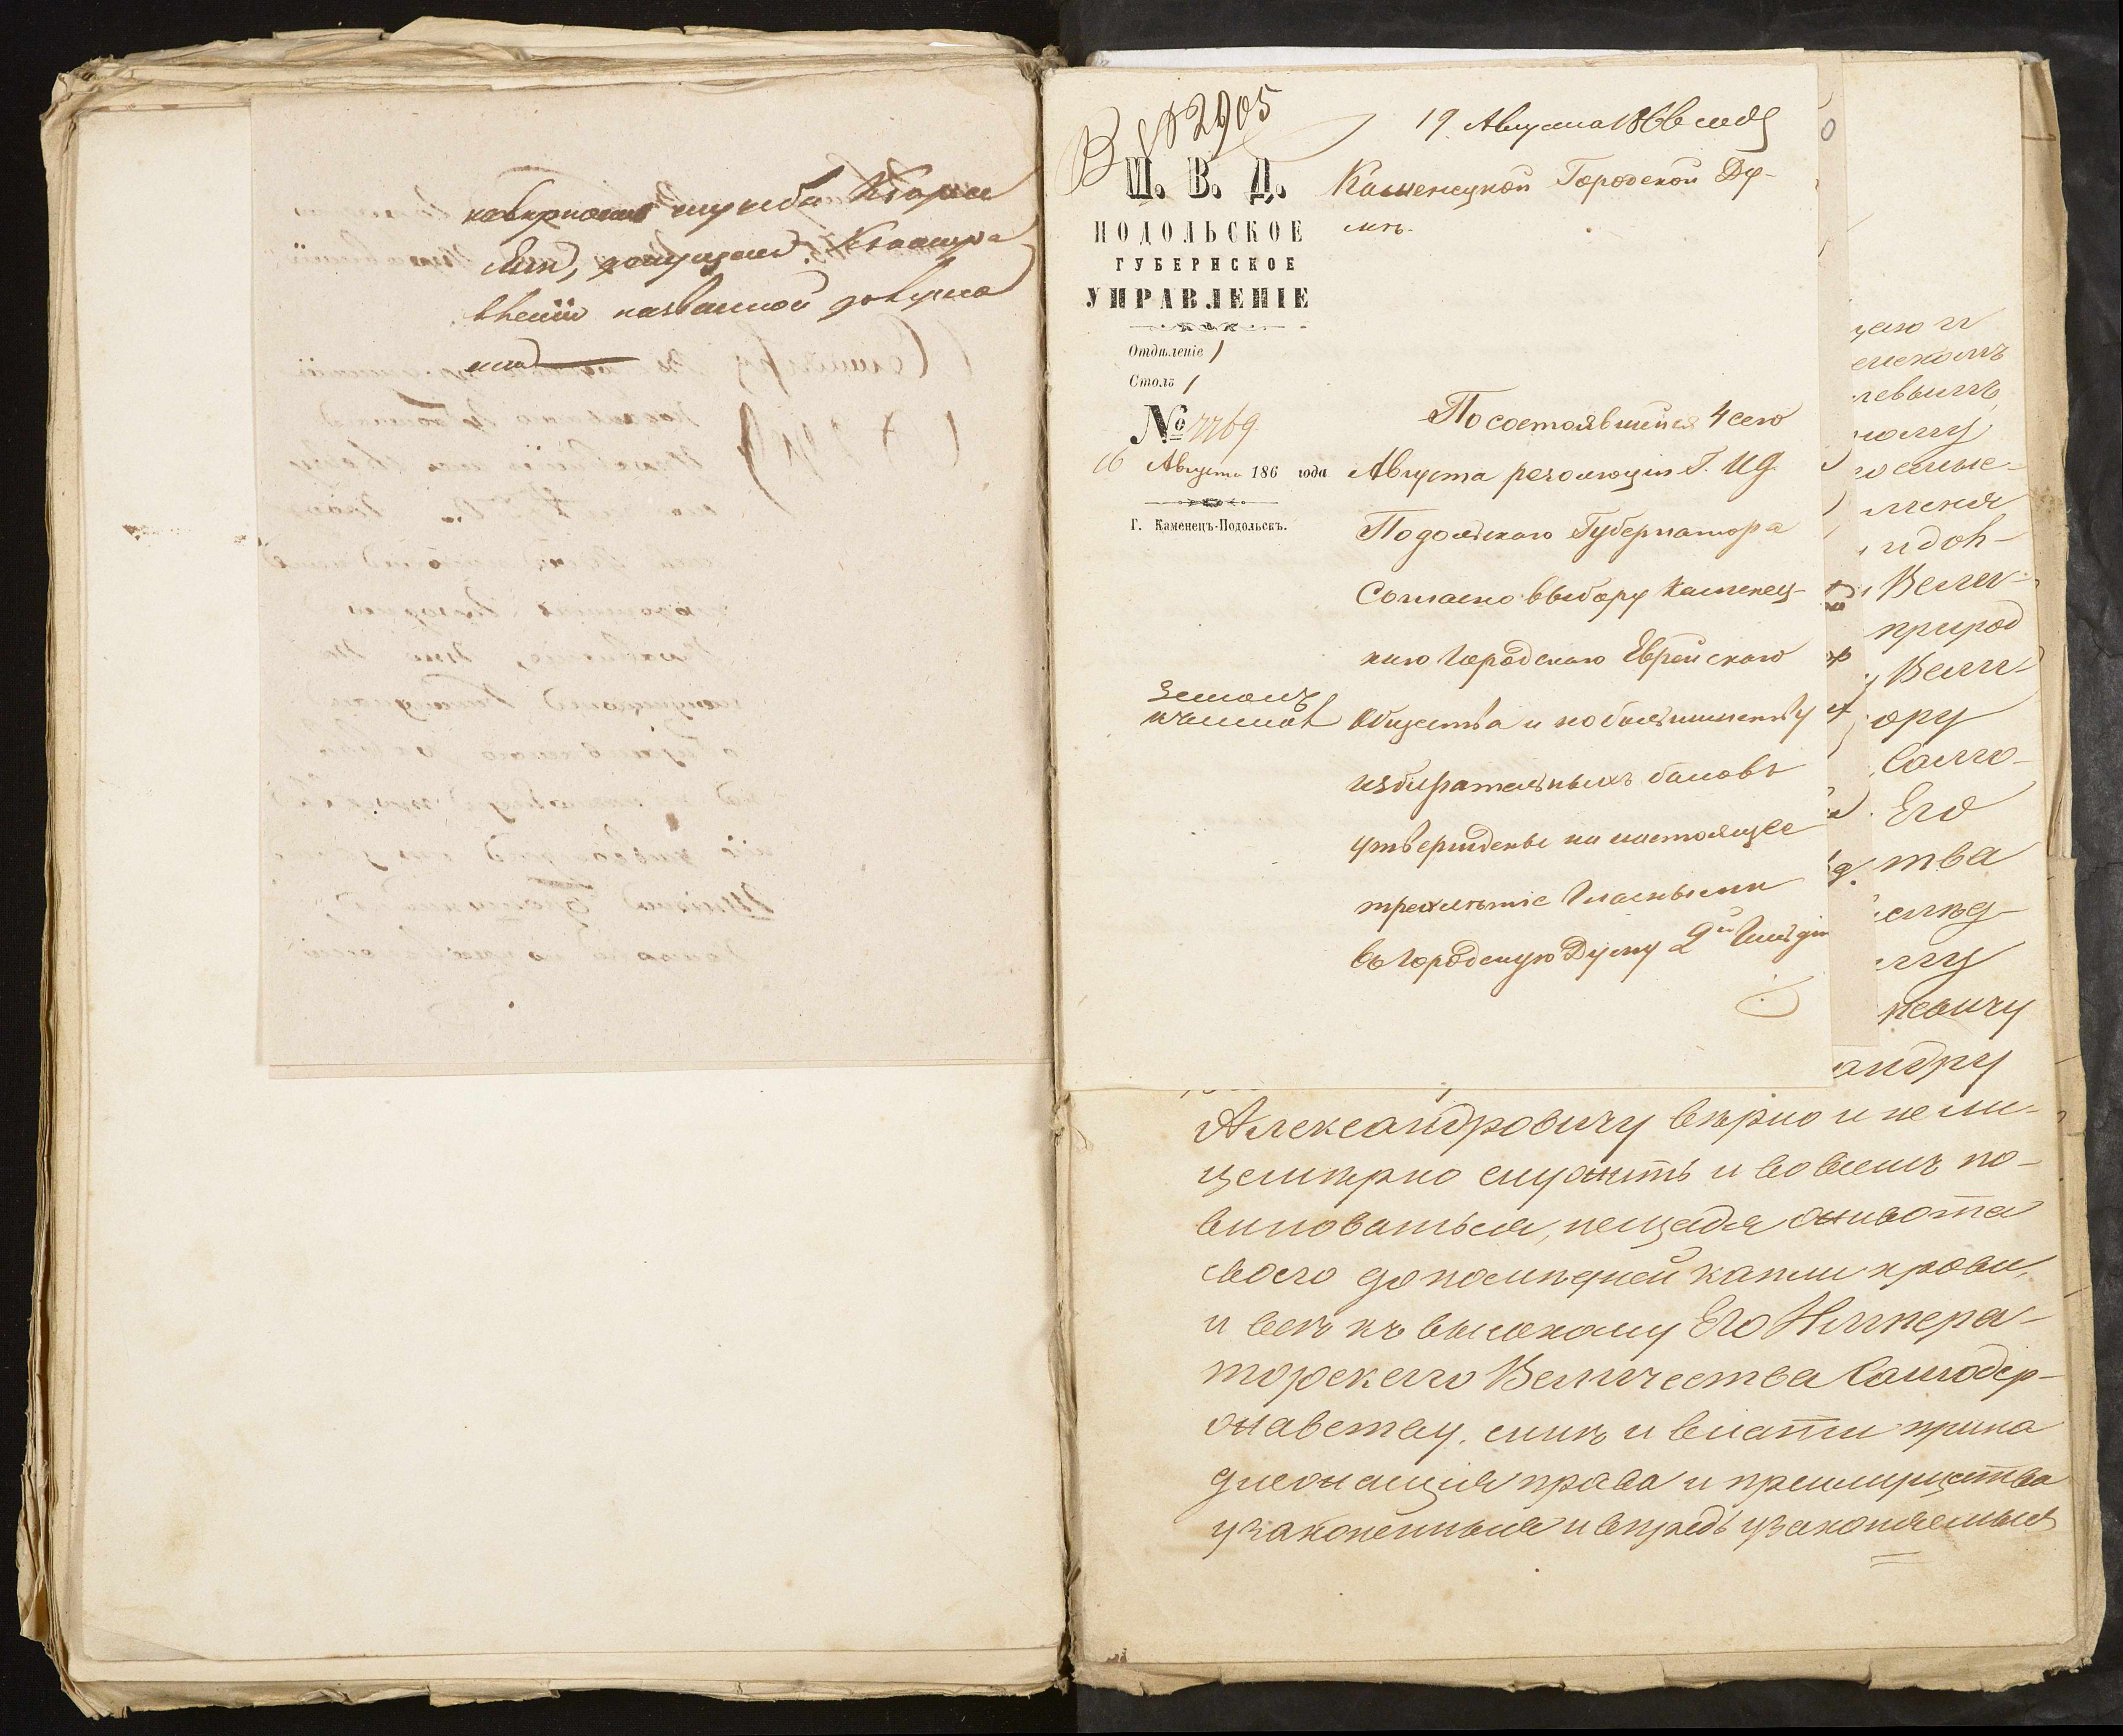 на верность службы
допущены.
влении названной
В № 2905
19 Августа 1866 года
М. В. Д.
ПОДОЛЬСКОЕ
ГУБЕРНСКОЕ
УПРАВЛЕНІЕ
Отдѣленіе 1
Столъ 1
№ 7769
16 Августа 186 года
Г. Каменецъ-Подольскъ.
Каменецкой Городской Ду-
мѣ.
По состоявшейся 4 сего
Августа резолюціи Г. И.Д.
Подольскаго Губернатора
Согласно выбору Каменец-
каго Городскаго Еврейскаго
Общества и по большинству
избирательныхъ баловъ
утверждены на настоящее
трехлѣтіе Гласными
въ Городскую Думу 2й Гильдіи
цаю и
Вели-
природ
Вели-
ору
Само-
Его
тва
андру
Александровичу вѣрно и нели-
цемѣрно служить и во всемъ по-
виноваться, нещадя живота
своего до послѣдней капли крови,
и всѣ къ высокому Его Импера-
торскаго Величества Самодер-
жавству, силѣ и власти прина
длежащія права и преимущества
узаконенныя и впредь узаконяемыя